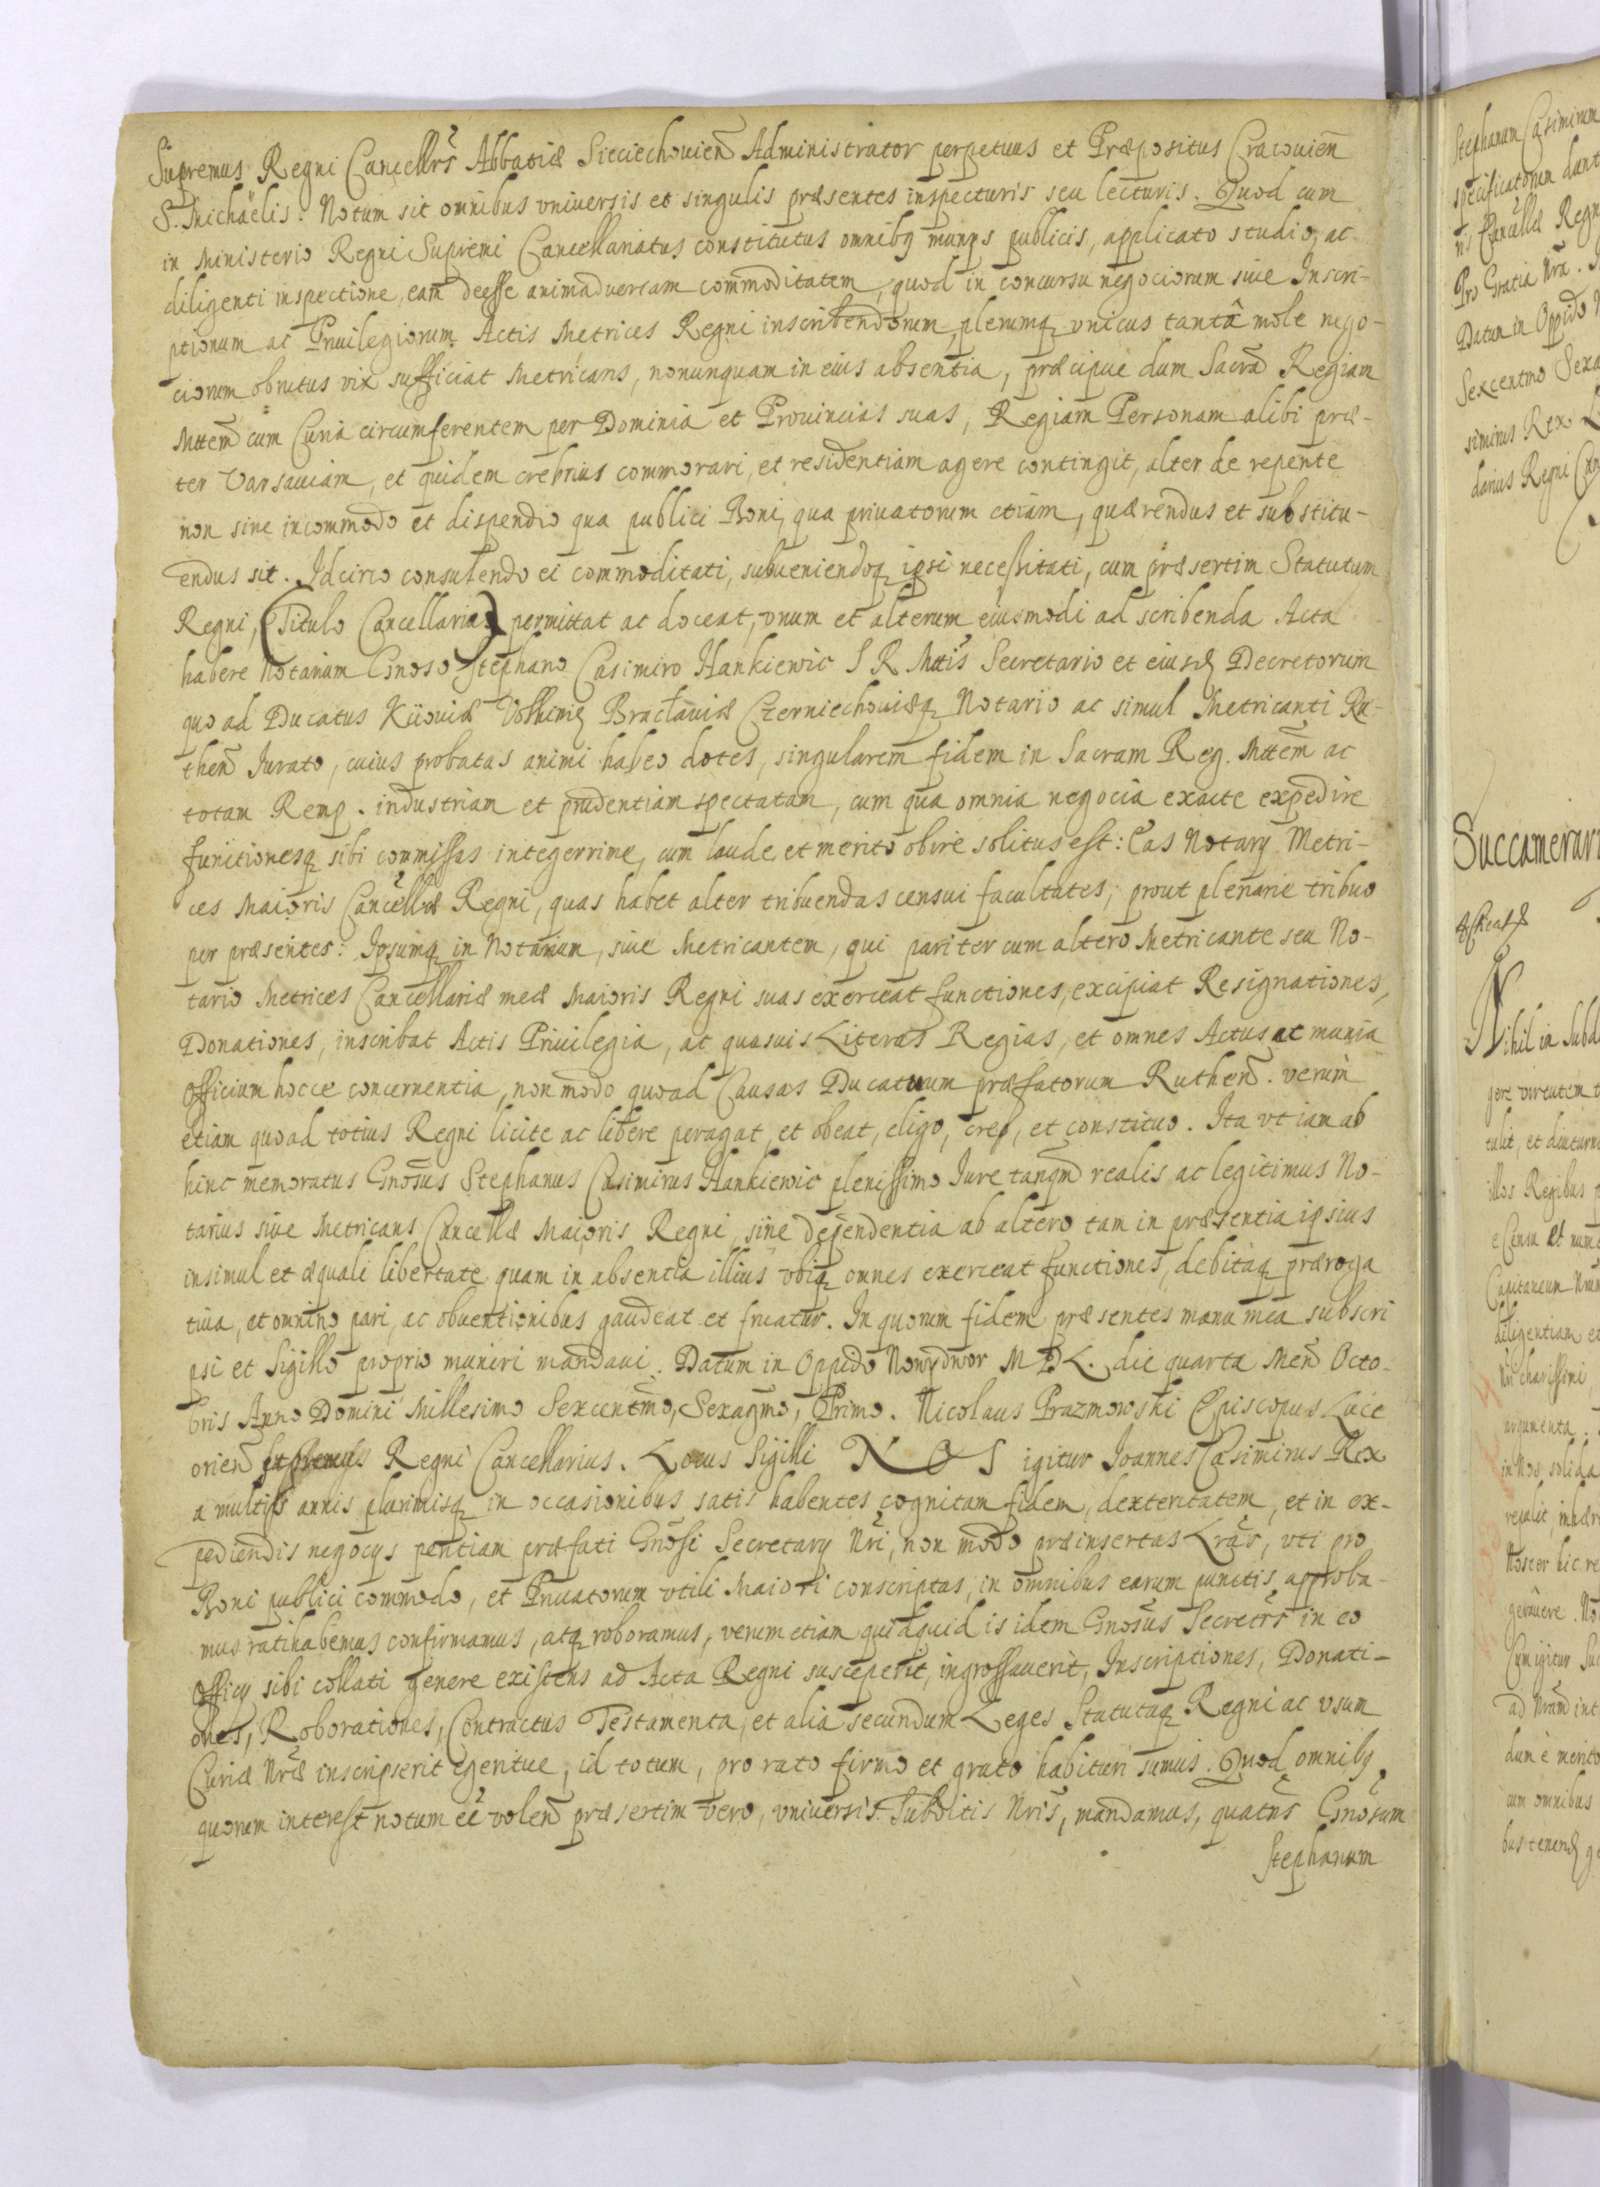 Supremus Regni Cancellrs Abbatiæ Sieciechouien Administrator perpetuus et Præpositus Cracouien
S. Michaëlis. Notum sit omnibus vniuersis et singulis præsentes inspecturis seu lecturis. Quod cum
in Ministerio Regni Supremi Cancellariatus constitutus omnibq munys publicis, applicato studio, ac
diligenti inspectione, eam deesse animaduertam commoditatem, quod in concursu negociorum siue Inscri-
ptionum ac Priuilegiorum Actis Metrices Regni inscribendorum, plerumq vnicus tantâ mole nego-
ciorum obrutus vix sufficiat Metricans, nonunquam in eius absentia, præcipue dum Sacrã Regiam
Mttem cum Curia circumferentem per Dominia et Prouincias suas, Regiam Personam alibi præ-
ter Varsauiam, et quidem crebrius commorari, et residentiam agere contingit, alter de repente
non sine incommodo et dispendio qua publici Boni, qua priuatorum etiam, quærendus et substitu-
endus sit. Idcirco consulendo ei commoditati, subueniendoq ipsi necessitati, cum præsertim Statutum
Regni, (Titulo Cancellariæ) permittat ac doceat, vnum et alterum eiusmodi ad scribenda Acta
habere Notarium Gnoso Stephano Casimiro Hankiewic S R Mttis Secretario et eiusd Decretorum
quo ad Ducatus Kiiouiæ Volhiniæ Bracłauiæ Czerniechouiæq Notario ac simul Metricanti Ru-
then Iurato, cuius probatas animi habeo dotes, singularem fidem in Sacram Reg. Mttem ac
totam Remp. industriam et prudentiam spectatam, cum qua omnia negocia exacte expedire
functionesq sibi commissas integerrime, cum laude et merito obire solitus est: Eas Notary Metri-
ces Maioris Cancellæ Regni, quas habet alter tribuendas censui facultates, prout plenarie tribuo
per præsentes: Ipsumq in Notarium, siue Metricantem, qui pariter cum altero Metricante seu No-
tario Metrices Cancellariæ meæ Maioris Regni suas exerceat functiones, excipiat Resignationes,
Donationes, inscribat Actis Priuilegia, ac quasuis Literas Regias, et omnes Actus ac munia
Officium hocce concernentia, non modo quoad Causas Ducatuum præfatorum Ruthen. verum
etiam quoad totius Regni licite ac libere peragat, et obeat, eligo, creo, et constituo. Ita vt iam ab
hinc memoratus Gnosus Stephanus Casimirus Hankiewic plenissimo Iure tanqm realis ac legitimus No-
tarius siue Metricans Cancellæ Maioris Regni sine dependentia ab altero tam in præsentia ipsius
insimul et æquali libertate quam in absentia illius vbiq omnes exerceat functiones, debitaq præroga
tiua, et omnino pari, ac obuentionibus gaudeat et fruatur. In quorum fidem præsentes manu mea subscri
psi et Sigillo proprio muniri mandaui. Datum in Oppido Nowydwor M D L. die quarta Men Octo-
bris Anno Domini Millesimo Sexcentmo, Sexagmo, Primo. Nicolaus Prazmowski Episcopus Luce
orien Supremus Regni Cancellarius. Locus Sigilli NOS igitur Ioannes Casimirus Rex
a multis annis plurimisq in occasionibus satis habentes cognitam fidem, dexteritatem, et in ex-
pediendis negocys peritiam præfati Gnosi Secretary Nri, non modo præinsertas Lras, vti pro
Boni publici commodo, et Priuatorum vtili Maiori conscriptas, in omnibus earum punctis approba-
mus ratihabemus confirmamus, atq roboramus, verum etiam quidquid is idem Gnosus Secretrs in eo
Officy sibi collati genere existens ad Acta Regni susceperit, ingrossauerit, Inscriptiones, Donati-
ones, Roborationes, Contractus Testamenta, et alia secundum Leges Statutaq Regni ac vsum
Curiæ Nræ inscripserit egeritue, id totum, pro rato firmo et grato habituri sumus. Quod omnibq
quorum interest notum eē volen præsertim vero, vniuersis Subditis Nris, mandamus, quatns Gnosum
Stephanum
Stephanum Casimirum
specificatorum
Cancellæ Regn
Pro Gratia Nra.
Datum in Oppido
Sexcentmo Sexa
simirus Rex
darius Regni
Succamerari
Nihil in
gere virtutem
tulit, et diuturn
illos Regibus
Capitaneum
diligentiam et
charissimi
argumenta.
in Nos solida
Cum igitur
ad Nram
dum è merito
cum omnibus
bus tenend